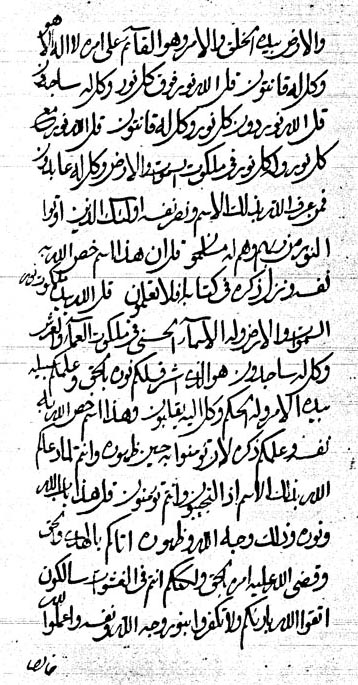 هو
والارض بيده الخلق والامر وهو القآئم على امره لا اله الا
وكل له قانتون قل الله نور فوق كل نور وكل له ساجدون
قل الله نور دون كل نور وكل له قانتون قل الله نور مع
كل نور والله كل نور فى ملكوت السموات والارض وكل له عابدون
فمن عرف الله بذلك الاسم وبصر نفسه اولئك الذين اوتوا
النور من ربهم وهم له مسلمون قل ان هذا اسم خص الله به
نفسه ونزل ذكره فى كتابه افلا تعلمون قل الله بيده ملكوت نور
السموات والارض وله الاسمآء الحسنى فى ملكوت العمآء والعرش
وكل له ساجدون هو الذى اشرق لكم نوره بالحق وعلمكم سبيله
بيده الامر وله الحكم وكل اليه يقلبون وهذا اسم خص الله به
نفسه وعلمكم ذكره لان تؤمنوا به حين ظهوره وانتم لما دعاكم
الله بذلك الاسم اذا انتم تجيبون وانتم تؤمنون قل هذا باب الله
ونوره وذلك وجه الله وظهوره اتاكم بالهدى والحق
وقضى الله عليه امره بالحق ولكنكم انتم فى الغفلة سالكون
اتقوا الله بارئكم ولا تكفروا بنور وجه الله ونفسه واعملوا لله
خالصا